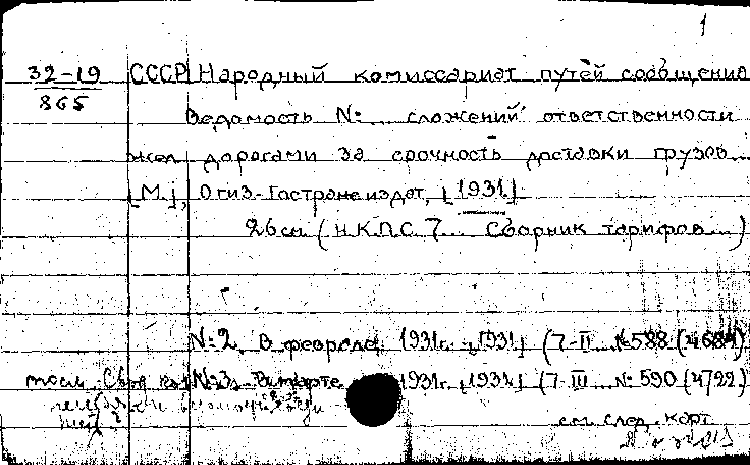 1
32-19 СССР Народный комиссариат путей сообщения
865
Ведомость №... сложений ответственности
жел. дорогами за срочность доставки грузов...
[М.], Огиз-Гострансиздат, [1931]
26 см (НКПС 7... Сборник тарифов...)
№2. В феврале 1931г. [1931] (7-II... №588 (4684)
№3. В марте 1931г. [1931] (7-III... №590 (4722)
см. след. карт.